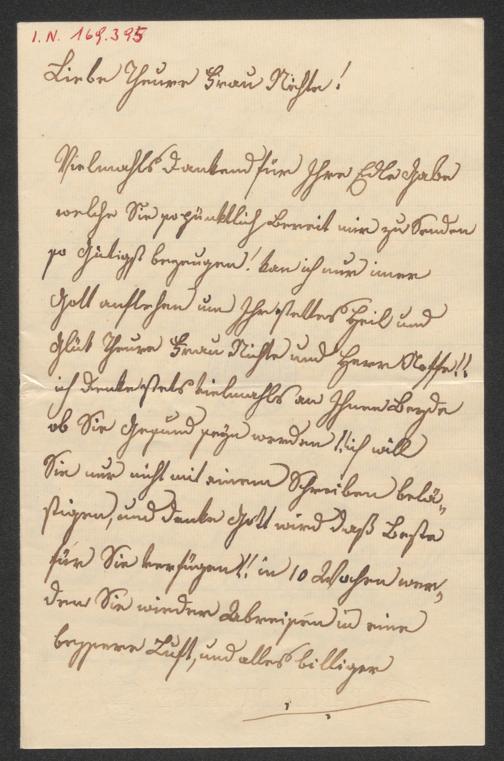 I. N. 169.395
Liebe Theure Frau Nichte!
Vielmahls Dankend für Ihre Edle Gabe
welche Sie so pünktlich Bereit mir zu Senden
so Gütigst bezeugen! kan ich nur imer
Gott anflehen um Ihr stettes Heil und
Glük Theure Frau Nichte und Herr Neffe!!
ich denke stets vielmahls an Ihnen Beyde
ob Sie Gesund seyn werden!! ich will
Sie nur nicht mit einem Schreiben belä-
stigen, und denke Gott wird daß Beste
für Sie verfügen!! in 10 Wochen wer-
den Sie wieder Abreisen in eine
bessere Luft, und alles billiger